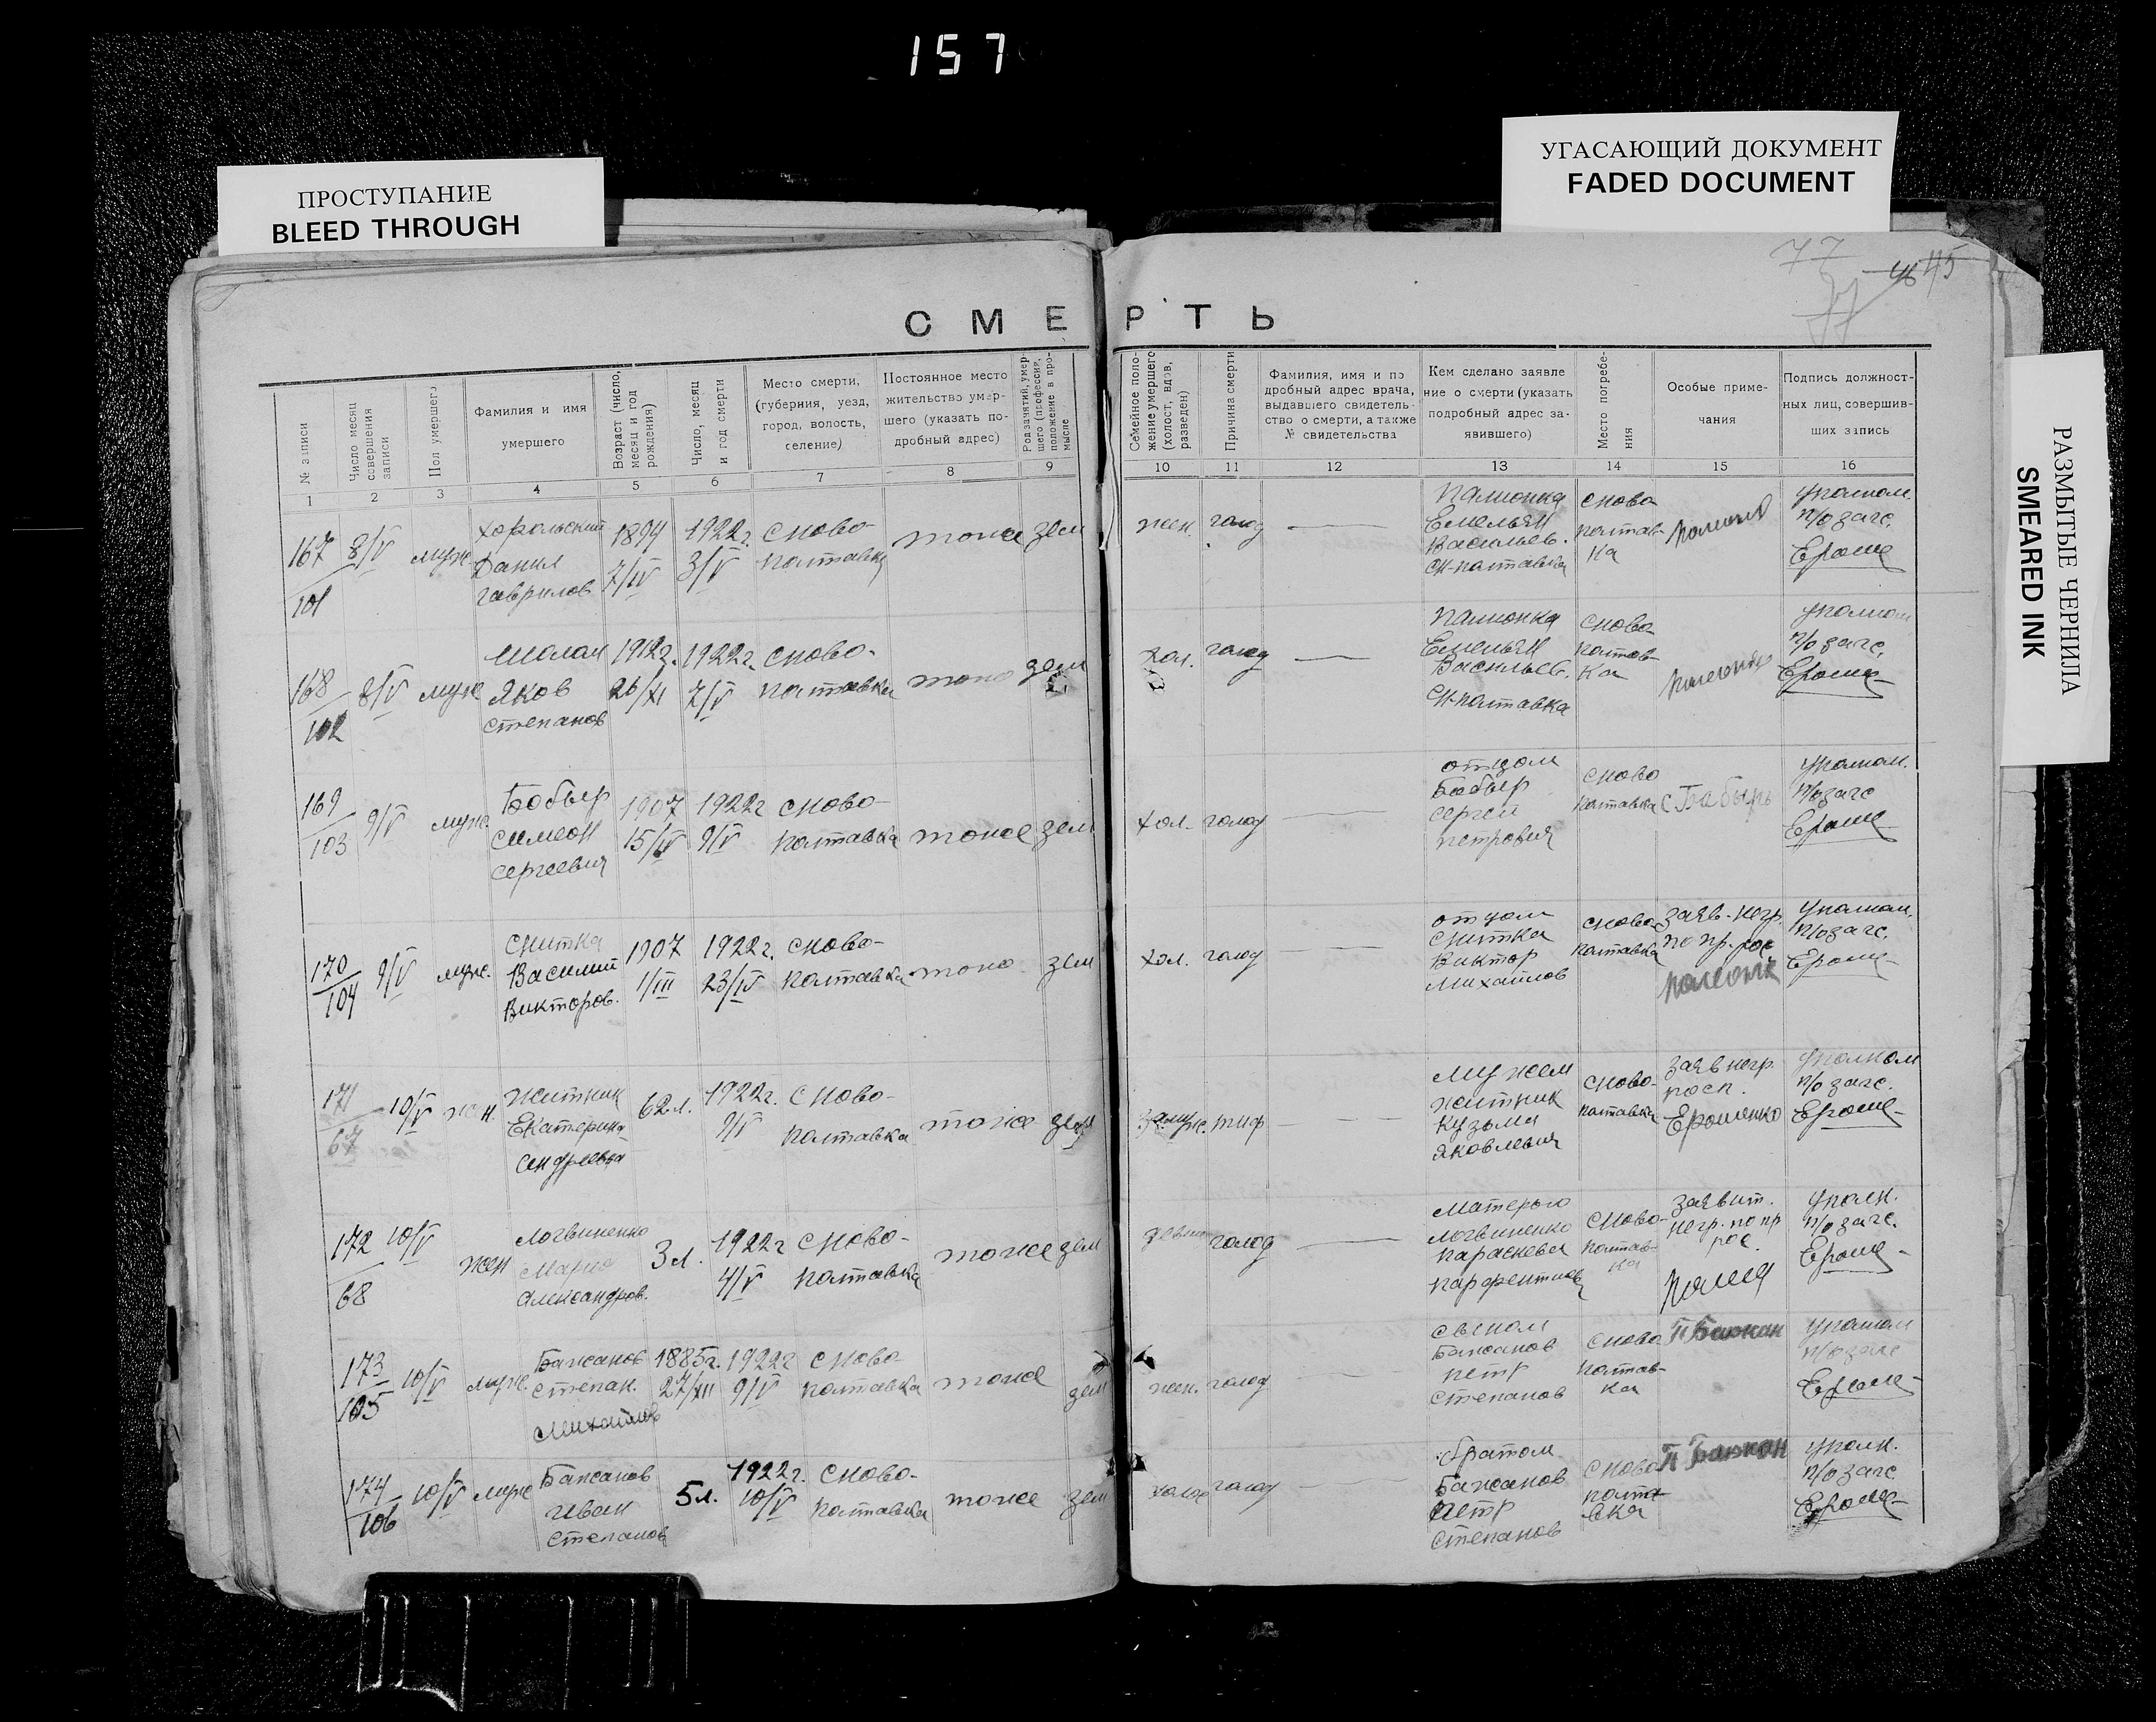 157
ПРОСТУПАНИЕ
BLEED THROUGH
УГАСАЮЩИЙ ДОКУМЕНТ
FADED DOCUMENT
РАЗМЫТЫЕ ЧЕРНИЛА
SMEARED INK
77
46 45
СМЕРТЬ
№ записи
Число месяц
совершения
записи
Пол умершего
Фамилия и имя
умершего
Возраст (число,
месяц и год
рождения)
Число, месяц
и год смерти
Место смерти,
(губерния, уезд,
город, волость,
селение)
Постоянное место
жительство умер-
шего (указать по-
дробный адрес)
Род занятий, умер-
шего (профессия,
положение в про-
мысле
Семейное поло-
жение умершего
(холост, вдов,
разведен)
Причина смерти
Фамилия, имя и по
дробный адрес врача,
выдавшего свидетель-
ство о смерти, а также
№ свидетельства
Кем сделано заявле
ние о смерти (указать
подробный адрес за-
явившего)
Место погребе-
ния
Особые приме-
чания
Подпись должност-
ных лиц, совершив-
ших запись
1 2 3 4 5 6 7 8 9 10 11 12 13 14 15 16
167
101
8/V
муж.
Хорольский
Данил
Гаврилов
1894
7/IV
1922г.
3/V
сново-
полтавка
тоже
зем
жен.
голод
Емельян
Васильев.
сн-полтавка
снова
полтав-
ка
п/о загс.
Ероше
168
102
8/V
муж
Яков
Степанов
1912г.
26/XI
1922г.
7/V
сново-
полтавка
зем
хол.
голод
Емельян
Васильев.
сн-полтавка
снова
ка
п/о загс.
Ероше
169
103
9/V
муж.
Бобыр
Симеон
Сергеевич
1907
15/IV
1922г
9/V
сново-
полтавка
тоже
зем
хол.
голод
отцом
Бобыр
Сергей
Петрович
сново
полтавка
С Бабырь
п/о загс
Ероше
170
104
9/V
муж.
Снитка
Василий
Викторов.
1907
1/III
1922г.
23/IV
сново-
полтавка
зем
хол.
голод
отцом
Снитка
Виктор
Михайлов
снова
полтавка
заяв. негр.
по пр. рос
п/о загс.
Ероше
171
67
10/V
жен.
Житник
Екатерина
62 л.
1922г.
9/V
сново-
полтавка
тоже
замуж.
тиф
мужем
Житник
Кузьма
Яковлевич
сново-
полтавка
заяв негр.
росп.
Ерошенко
п/о загс.
Ероше
172
68
10/V
жен
Логвиненко
Мария
Александров.
3 л.
1922г
4/V
сново-
полтавка
тоже
зем
голод
матерью
Логвиненко
Параскева
сново-
полтав-
ка
негр. по пр
рос.
п/о загс.
Ероше
173
105
10/V
муж.
Бажанов
Степан.
Михайлов
1885г.
27/XII
1922г
9/V
сново-
полтавка
тоже
зем
жен.
голод
сыном
Бажанов
Петр
Степанов
сново
полтав-
ка
П Бажан
п/о загс
Ероше
174
106
10/V
муж
Бажанов
Иван
Степанов
5 л.
1922г.
10/V
сново-
полтавка
тоже
зем
голод
братом
Бажанов
Петр
Степанов
сново
полта
вка
П Бажан
п/о загс.
Ероше